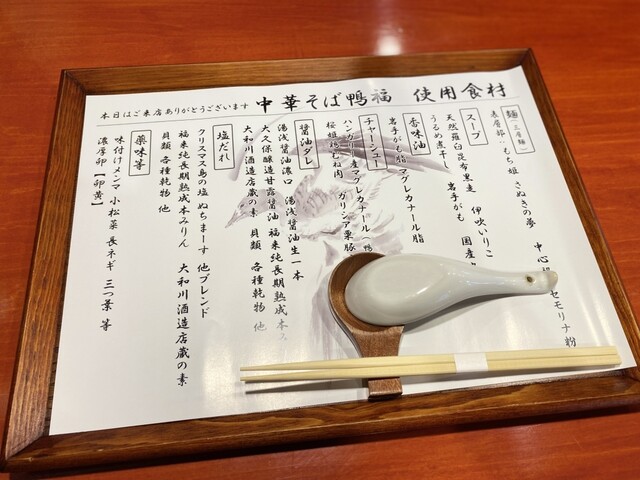 本日はご来店ありがとうございます
中華そば鴨福 使用食材
麺(三層麺)
表層部:もち姫 さぬきの夢 中心
セモリナ粉
スープ
天然羅臼昆布黒走 伊吹いりこ
うるめ煮干し 岩手がも 国産
香味油
岩手がも脂 マグレカナール脂
チャーシュー
ハンガリー産マグレカナール 鴨
桜姫鶏むね肉 ガリシア栗豚
醤油ダレ
湯浅醤油濃口 湯浅醤油生一本
大久保醸造甘露醤油 福来純長期熟成本
大和川酒造店蔵の素 貝類 各種乾物 他
塩だれ
クリスマス島の塩 ぬちまーす 他ブレンド
福来純長期熟成本みりん 大和川酒造店蔵の素
貝類 各種乾物 他
薬味等
味付けメンマ 小松菜 長ネギ 三つ葉 等
濃厚卵【卵黄】